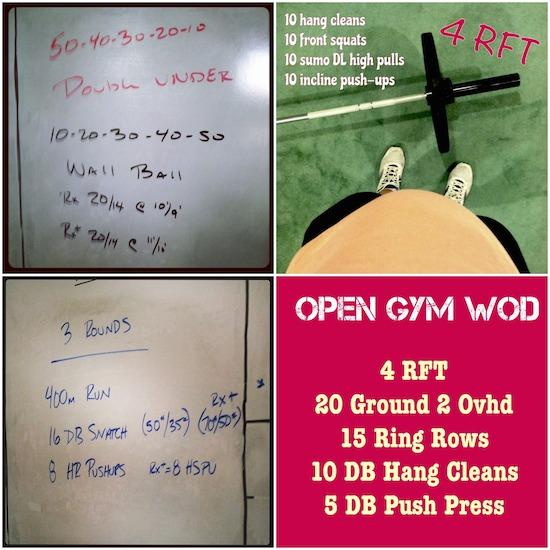 50-40-30-20-10
Double UNDER
10-20-30-40-50
Wall Ball
Rx 20/14 @ 10'/9'
Rx+ 20/14 @ 11'/10'
10 hang cleans
10 front squats
10 sumo DL high pulls
10 incline push-ups
4 RFT
3 Rounds
400m Run
Rx+
16 DB Snatch (50#/35#) (70#/50#)
8 HR Pushups Rx+=8 HSPU
OPEN GYM WOD
4 RFT
20 Ground 2 Ovhd
15 Ring Rows
10 DB Hang Cleans
5 DB Push Press